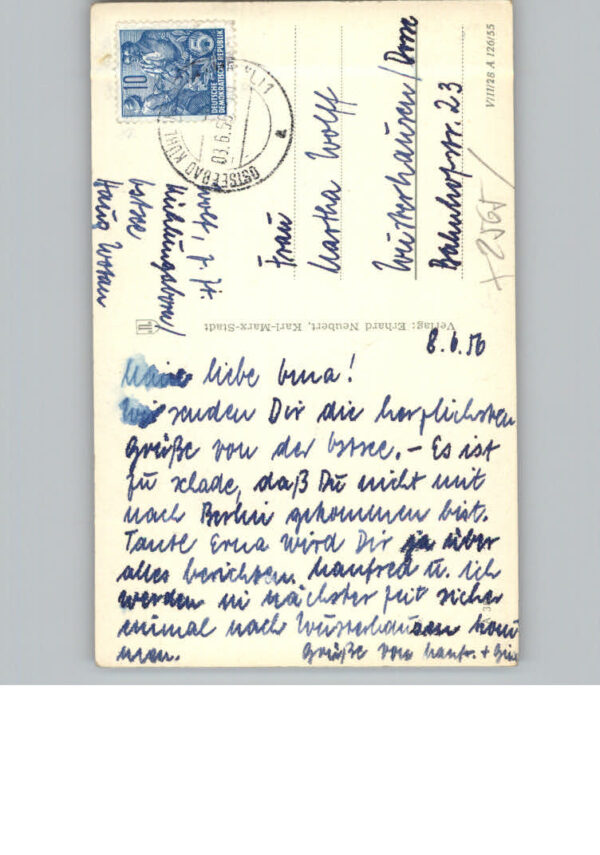 8.6.56
Meine liebe Oma!
Wir senden Dir die herzlichsten
Grüße von der Ostsee. – Es ist
zu schade, daß Du nicht mit
nach Berlin gekommen bist.
Tante Erna wird Dir ja über
alles berichten. Manfred u. ich
werden in nächster Zeit sicher
einmal nach Wusterhausen kom
men.
Grüße von Manfr. +
Frau
Martha Wolff
Wusterhausen/Dosse
Bahnhofstr. 23
Wolf, z. Zt.
Kühlungsborn/
Ostsee
Haus
Verlag: Erhard Neubert, Karl-Marx-Stadt
VIII/28 A 126/55
DEUTSCHE
DEMOKRATISCHE REPUBLIK
10
5
OSTSEEBAD KÜHL
a